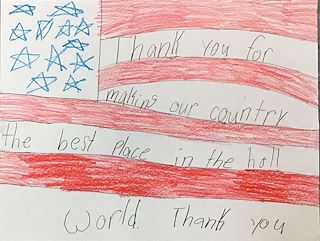 Thank you for
making our country
the best place in the holl
World. Thank you